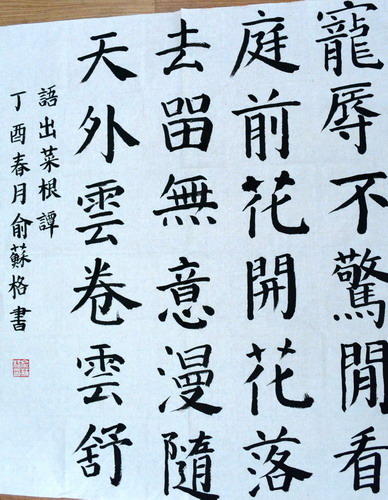 寵辱不驚閒看
庭前花開花落
去畱無意漫隨
天外雲卷雲舒
語出菜根譚
丁酉春月俞蘇格書